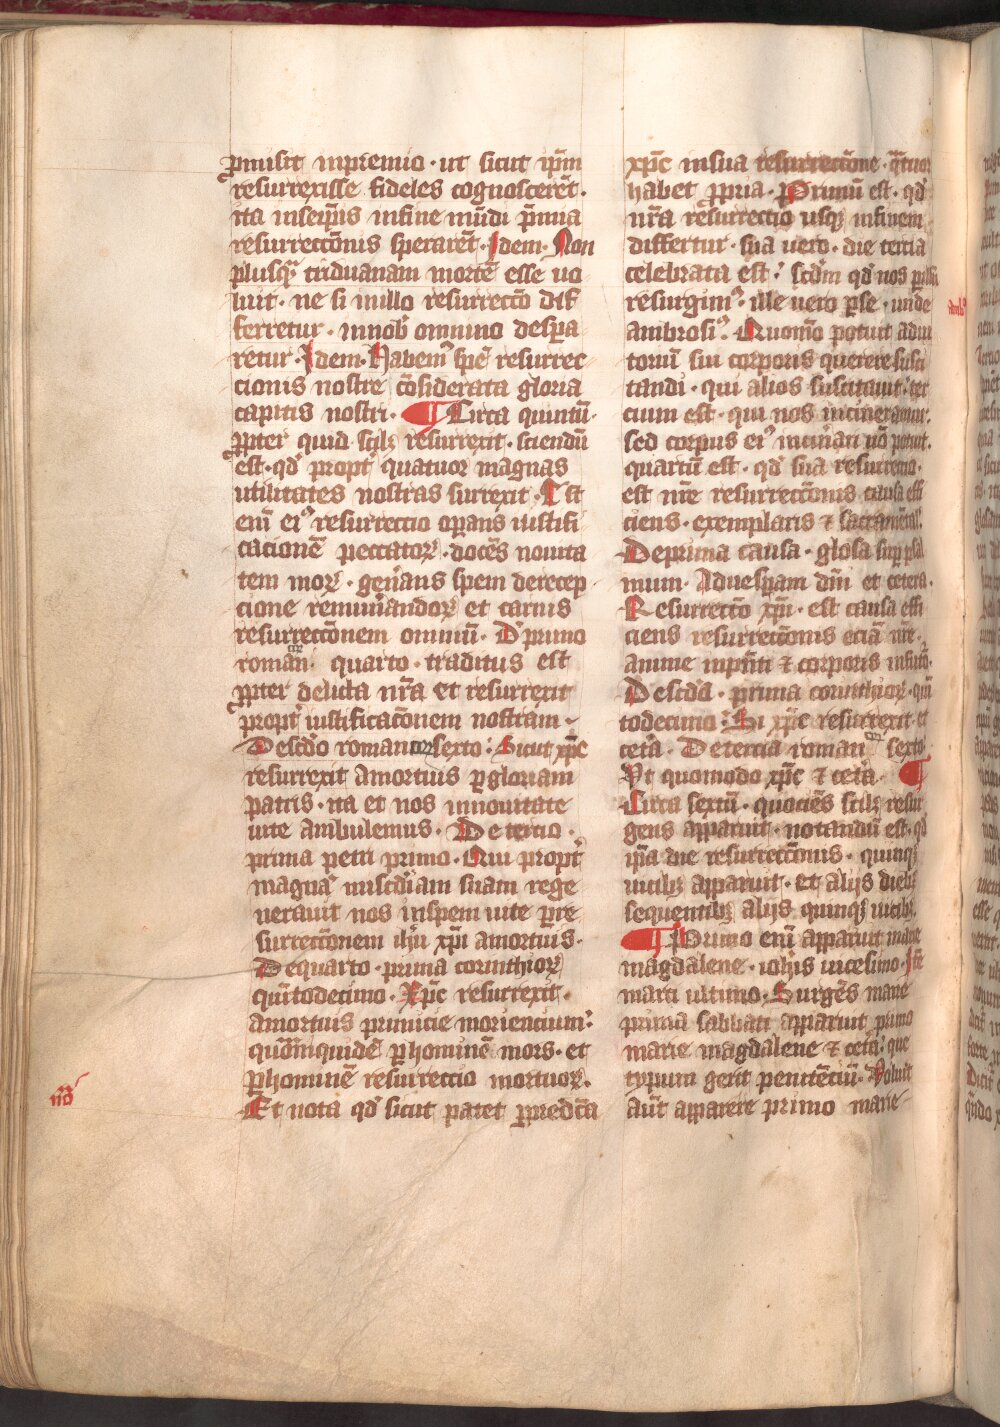 ꝓmisit inpremio · ut sicut ipm̄
resurrexisse fideles cognoscerēt ·
ita inseip̄is infine mūdi p̄mia
resurrectōnis sperarēt · Idem · Non
plusqᷓ triduanam mortē esse uo
luit · ne si inillo resurrectō dif
ferretur · innob̄ omnino despa
retur · Idem · Habemꝰ spē resurrec
cionis nostre cōsiderata gloria
capitis nostri · ¶ Circa quintū ·
ꝓpter quid scilꝫ resurrexit · sciendū
est · qd̓ propt̓ quatuor magnas
utilitates nostras surrexit · Est
eni̅ eiꝰ resurreccio oꝑans iustifi
cacionē peccatoꝝ · docēs nouita
tem moꝝ · gen̓ans spem derecep
cione remun̓andoꝝ et carnis
resurrectōnem omniū · D̓ primo
roman̄ · quarto · traditus est
ꝓpter delicta nr̄a et resurrexit
propt̓ iustificatōnem nostram ·
Desc̄do romanoꝝ sexto · Sicut xp̄c
resurrexit amortuis ꝑgloriam
patris · ita et nos innouitate
uite ambulemus · De tercio ·
prima petri primo · Qui propt̓
magnā misc̄diam suam rege
nerauit nos inspem uite ꝑre
surrectōnem ih̄u xp̄i amortuis ·
Dequarto · prima corinthioꝝ
quītodecimo · Xp̄c resurrexit ·
amortuis primicie moriencium ·
quōmquidē ꝑhominē mors · et
ꝑhominē resurreccio mortuoꝝ ·
Et nota qd̓ sicut patet ꝑpredc̄a
nō
xp̄c insua resurrectōne · qᷓtuor
habet ꝓpria · Primū est · qd̓
nr̄a resurrectio usqꝫ infinem
differtur · sua uero · die tercia
celebrata est · scd̄m qd̓ nos ꝑ
resurgimꝰ · ille uero ꝑse · unde
ambrosiꝰ · Quomō potuit adiu
toriū sui corporis querere susci
tandi · qui alios suscitauit · ter
cium est · qui nos incineramur ·
sed corpus eiꝰ incin̓ari nō potuit ·
quartū est · qd̓ sua resurrectio ·
est nr̄e resurrectōnis causa effi
ciens · exemplaris ⁊ sacramētal̓
Deprima causa · glosa suꝑ psal
mum · Aduesꝑam dm̄i et cetera ·
Resurrectō xp̄i · est causa effi
ciens resurrectōnis eciā nr̄e ·
anime inp̄n̄ti ⁊ corporis infutō ·
Desc̄da · prima corinthioꝝ · qui
todecimo · Si xp̄c resurrexit · et
cet̓a · Detercia roman̄ sexto
Vt quomodo xp̄c ⁊ cet̓a · ¶
Circa sextū · quociēs scilꝫ resur
gens apparuit · notandū est · qd̓
ip̄a die resurrectōnis · quinqꝫ
uicibꝫ apparuit · et alijs diebꝫ
sequentibꝫ alijs quinqꝫ uicibꝫ ·
¶ Primo eni̅ apparuit marie
magdalene · ioh̄is uicesimo · It̄
marci ultimo · Surgēs mane
prima sabbati apparuit primo
marie magdalene ⁊ cet̓a · que
typum gerit penitēciū · Voluit
aūt apparere primo marie